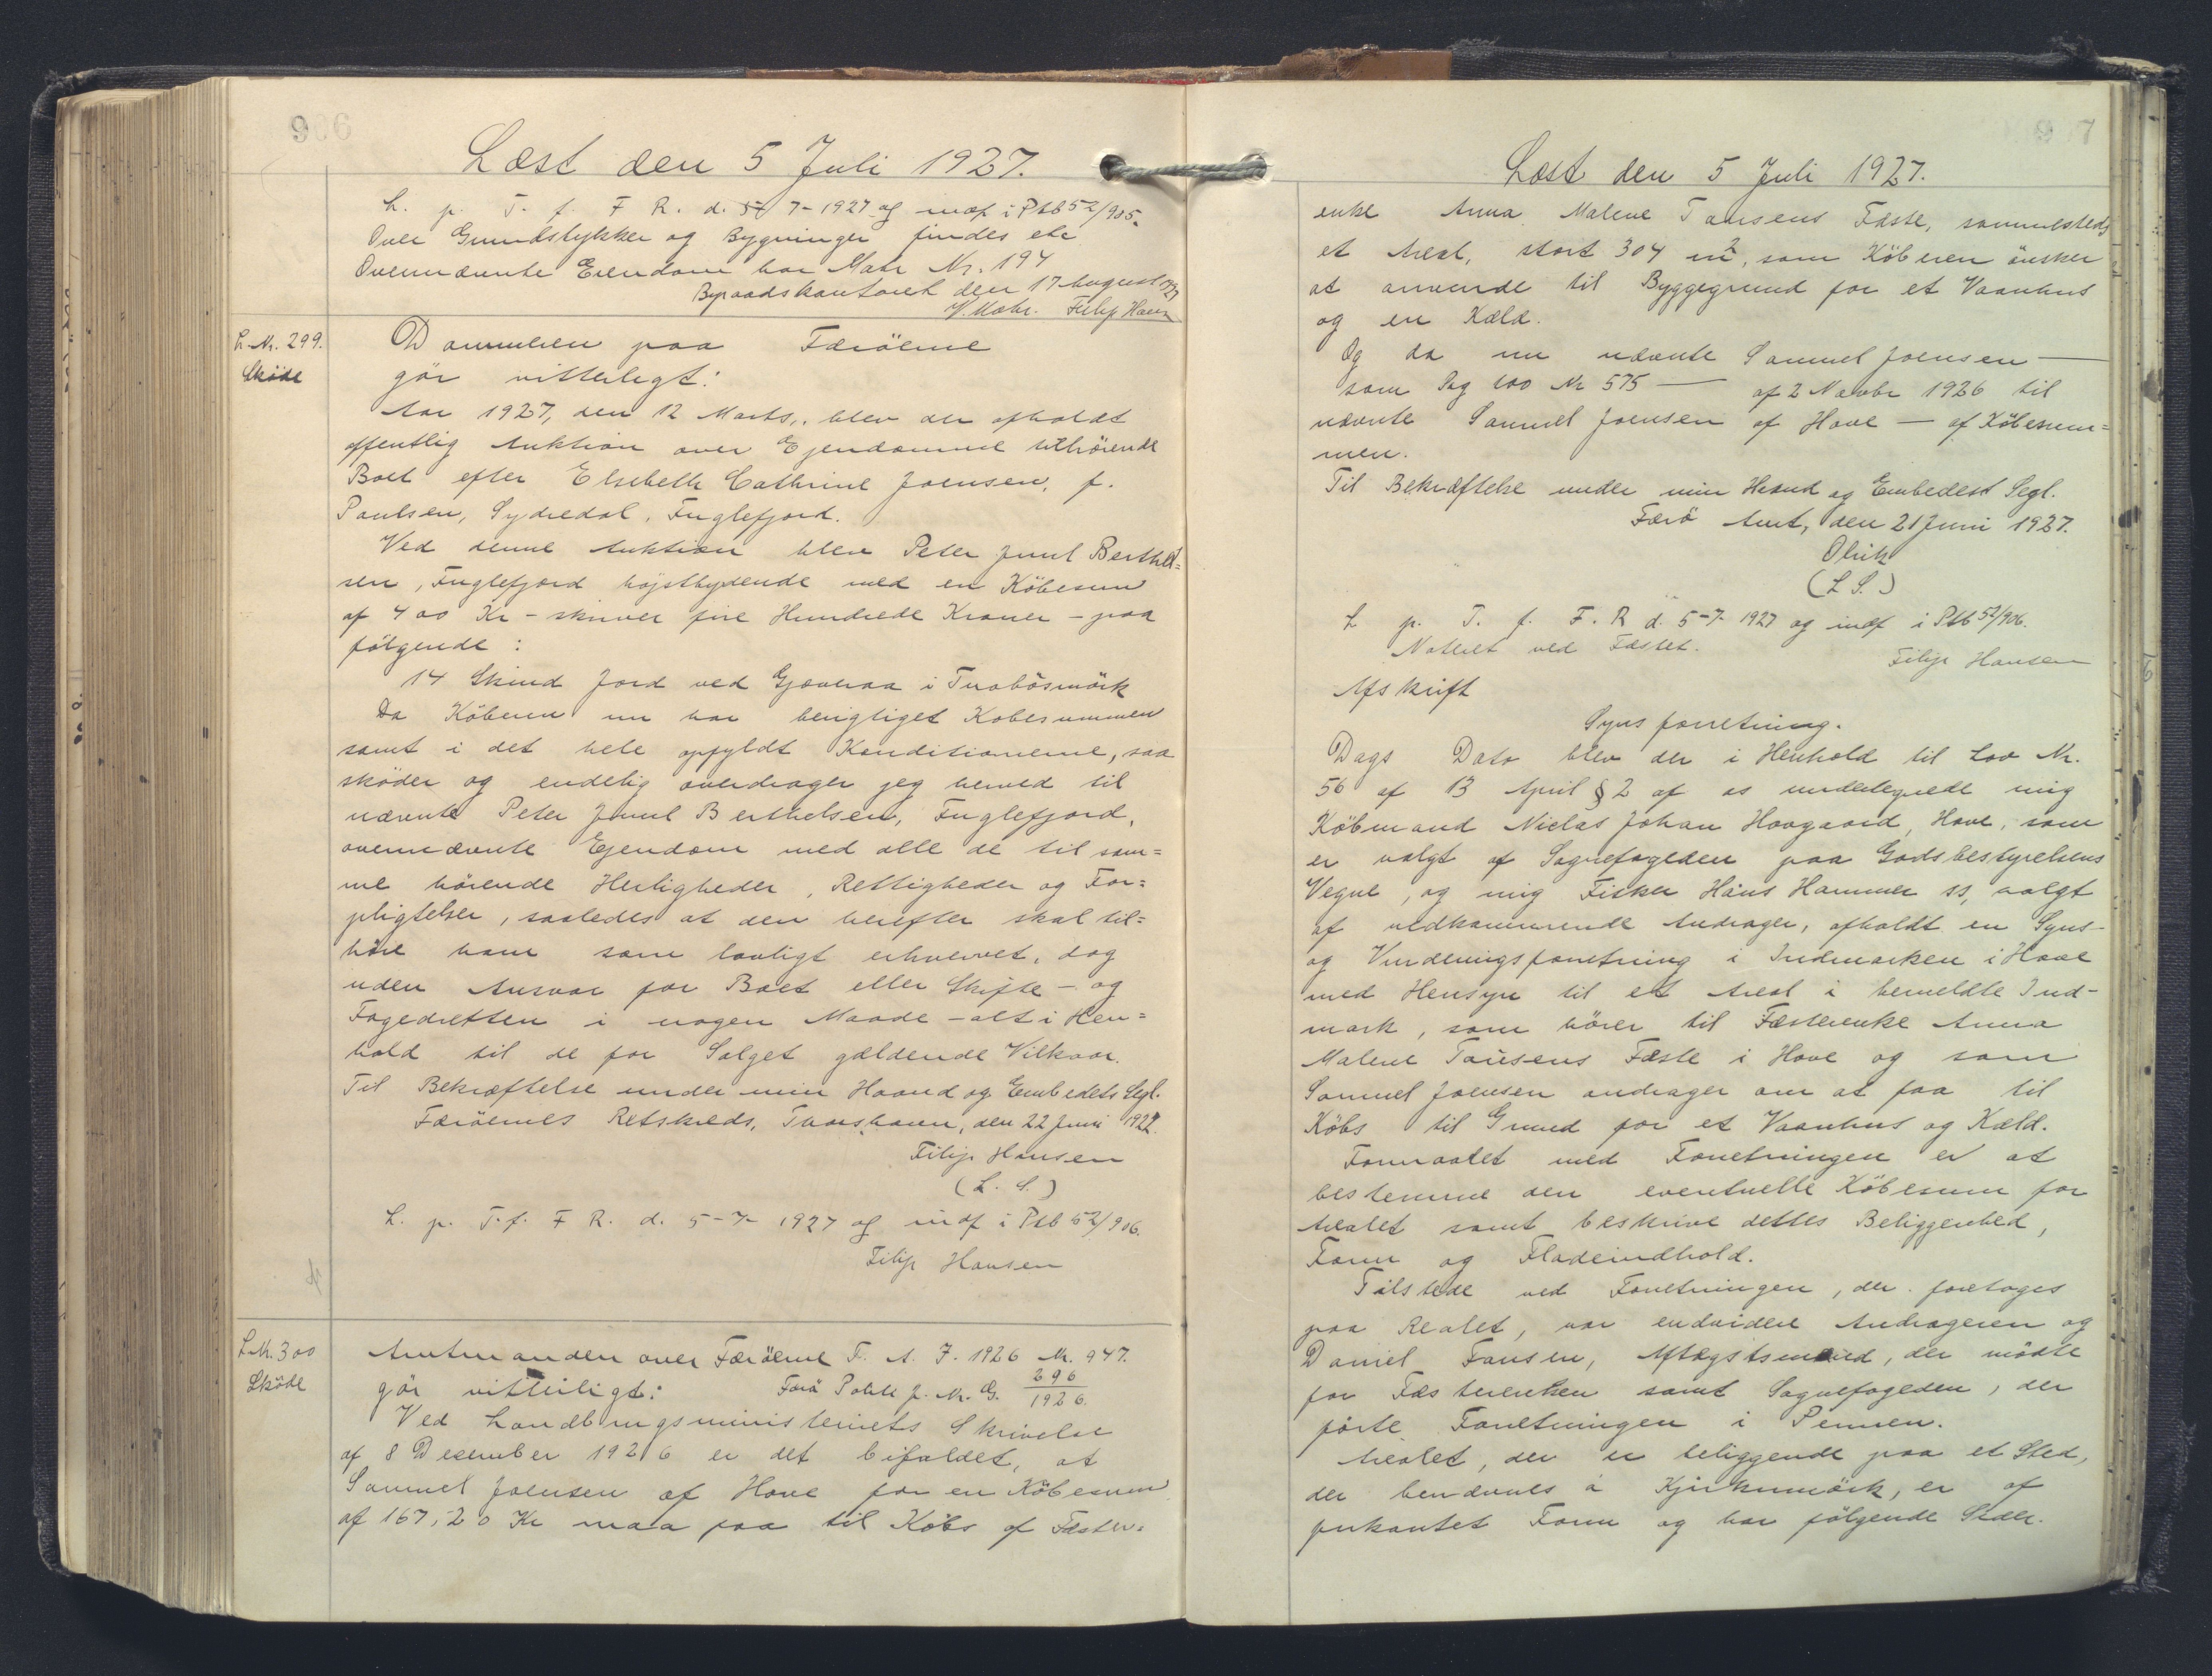 906
Læst den 5 Juli 1927.
L. p. T. f. F R. d. 5/7-1927 og indf i Ptb 52/905.
Over Grundstykker og Bygninger findes ete
Ovennævnte Eiendom har Matr Nr. 194
Byraadskontoret den 17 August 1927
Filip Hansen
L. Nr. 299.
Sköde
Dommeren paa Færöerne
gör vitterligt:
Aar 1927, den 12 Marts, blev der afholdt
offentlig Auktion over Ejendomme tilhörende
Boet efter Elsebeth Cathrine Joensen, f.
Paulsen, Sydredal, Fuglefjord.
Ved denne Auktion blev Peter Juul Berthel=
sen, Fuglefjord höjstbydende med en Köbesum
af 400 Kr - skriver fire Hundrede Kroner - paa
fölgende:
14 Skind Jord ved Gjoveraa i Tvobösmörk
Da Köberen nu har berigtiget Kobesummen
samt i det hele opfyldt Konditionerne, saa
sköder og endelig overdrager jeg herved til
nævnte Peter Juul Berthelsen, Fuglefjord,
ovennævnte Ejendom med alle de til sam=
me hörende Herligheder, Rettigheder og For=
pligtelser, saaledes at den herefter skal til=
höre ham som lovligt erhvervet, dog
uden Ansvar for Boet eller Skifte - og
Fogedretten i nogen Maade - alt i Hen=
hold til de for Salget gældende Vilkaar.
Til Bekræftelse under min Haand og Embedets Segl.
Færöernes Retskreds, Thorshavn, den 22 Juni 1927.
Filip Hansen
(L. S.)
L. p. T. f. F R. d. 5-7-1927 og indf i Ptb 52/906.
Filip Hansen
L. Nr. 300
Sköde
Amtmanden over Færöerne F. A. J. 1926 Nr. 947.
gör vitterligt: Færö Politi J. Nr. G. 696/1926.
Ved Landbrugsministeriets Skrivelse
af 8 Desember 1926 er det bifaldet, at
Samuel Joensen af Hove for en Köbesum
af 167,20 Kr maa faa til Köbs af Fæster=
907
Læst den 5 Juli 1927.
enke Anna Malene Tausens Fæste, sammesteds
et Areal, stort 304 m2, som Köberen önsker
at anvende til Byggegrund for et Vaanhus
og en Kæld.
Og da nu nævnte Samuel Joensen —
som Dag 100 Nr 575 — af 2 Novbr 1926 til
nævnte Samuel Joensen af Hove — af Köbesum=
men.
Til Bekræftelse under min Haand og Embedest Segl.
Færö Amt, den 21 Juni 1927.
Olrik
(L S.)
L p. T. f. F. R d. 5-7-1927 og indf i Ptb 52/906.
Noteret ved Fæstet.
Filip Hansen
Afskrift
Synsforretning.
Dags Dato blev der i Henhold til Lov Nr.
56 af 13 April § 2 af os undertegnede mig
Köbmand Niclas Johan Hovgaard, Hove, som
er valgt af Sognefogeden paa Godsbestyrelsens
Vegne, og mig Fisker Hans Hammer ss, valgt
af vedkommende Andrager, afholdt en Syns-
og Vurderingsforretning i Indmarken i Hove
med Hensyn til et Areal i bemeldte Ind-
mark, som hörer til Fæsterenke Anna
Malene Tausens Fæste i Hove og som
Samuel Joensen andrager om at faa til
Köbs til Grund for et Vaanhus og Kæld.
Formaalet med Forretningen er at
bestemme den eventuelle Köbesum for
Arealet samt beskrive dettes Beliggenhed,
Form og Fladeindhold.
Tilstede ved Forretningen, der foretages
paa Realet, var endvidere Andrageren og
Daniel Tausen, Aftægtsmand, der mödte
for Fæsterenken samt Sognefogeden, der
förte Forretningen i Pennen.
Arealet, der er beliggende paa et Sted,
der benævnes á Kjirkumörk, er af
firkantet Form og har fölgende Sider.